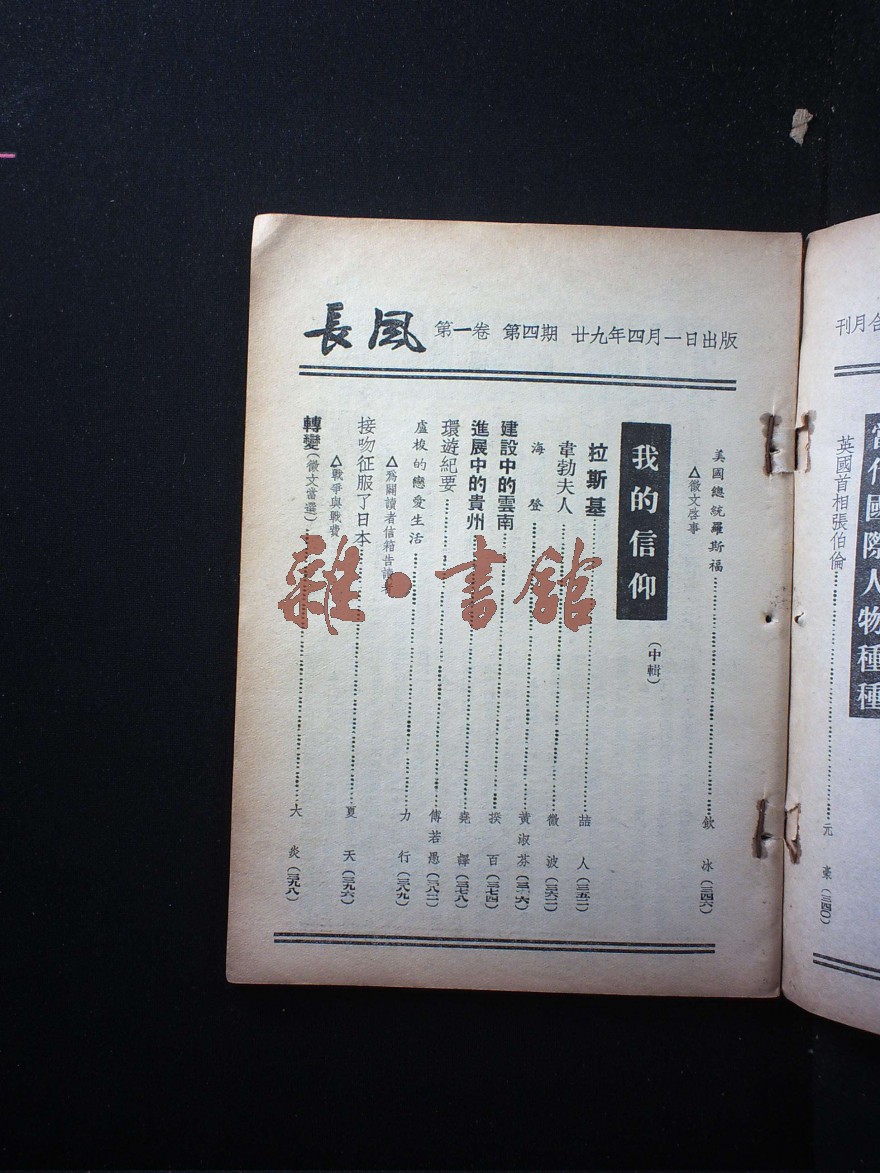 刊月合
當代國際人物種種
英國首相張伯倫……元橐(三四〇)
長風 第一卷 第四期 廿九年四月一日出版
美國總統羅斯福……欽冰(三四六)
△徵文啓事
我的信仰(中輯)
拉斯基……詰人(三五二)
韋勃夫人……微波(三六二)
海登……黃淑芬
建設中的雲南……揆百(三七四)
進展中的貴州……堯譯(三七八)
環遊紀要……傅若愚(三八二)
盧梭的戀愛生活……力行(三八九)
△爲闢讀者信箱告讀者
接吻征服了日本……夏天(三九六)
△戰爭與戰費
轉變(徵文當選)……大炎(三九八)
雜·書館